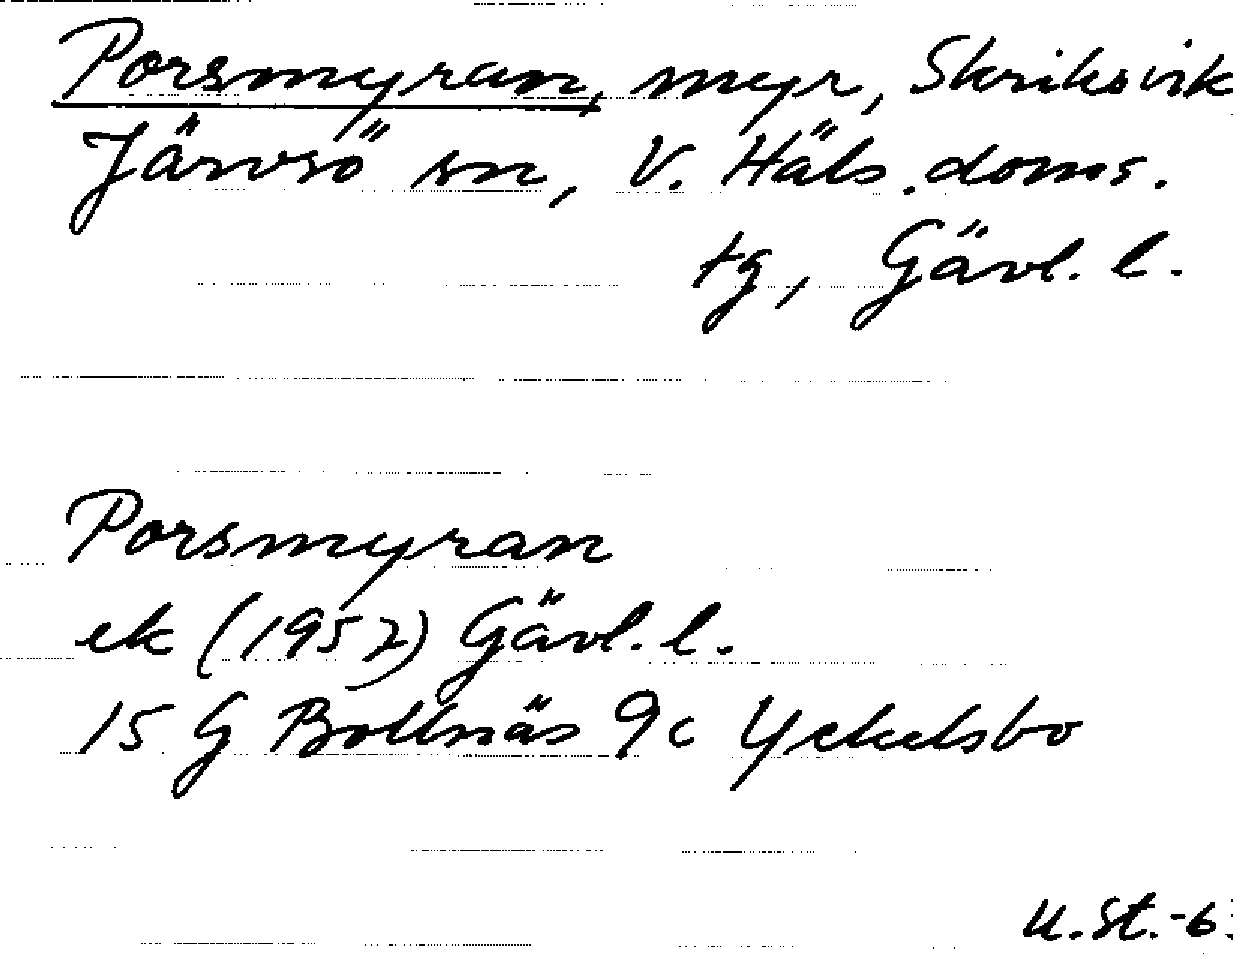 Porsmyran, myr, Skriksvik
Järvsö sn, V. Häls. doms.
tg, Gävl. l.
Porsmyran
ek (1957) Gävl. l.
15 G Bollnäs 9c Yckelsbo
U.St.-6